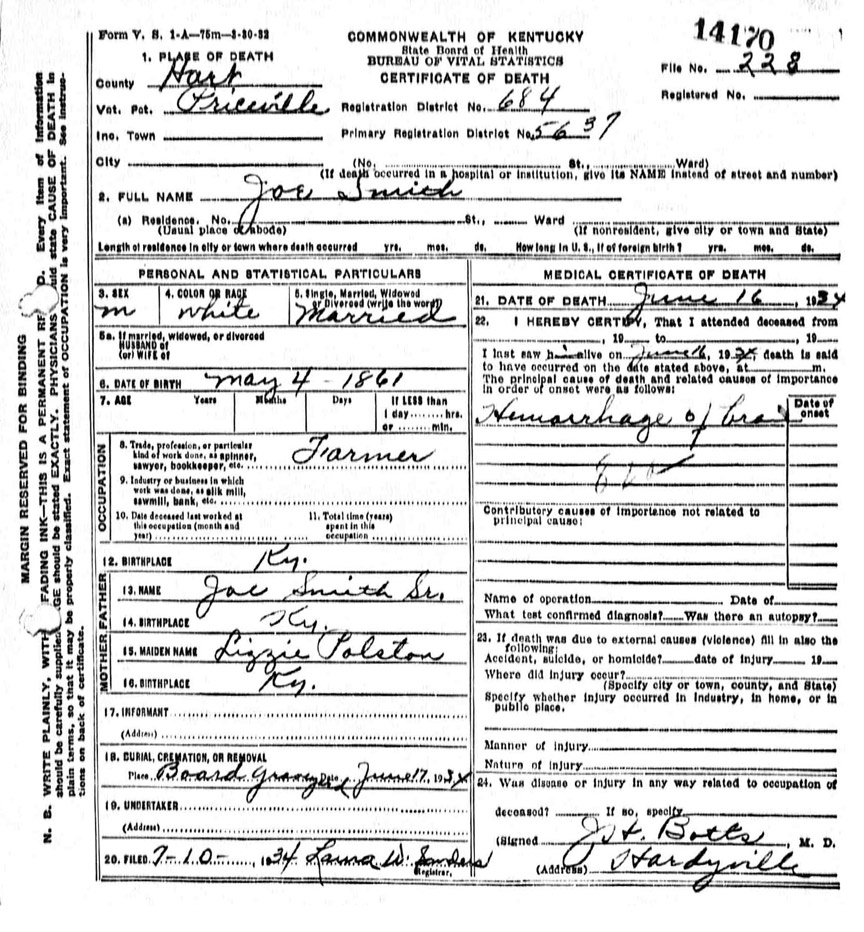 Form V. S. 1-A—75m—3-30-32
14170
COMMONWEALTH OF KENTUCKY
State Board of Health
BUREAU OF VITAL STATISTICS
CERTIFICATE OF DEATH
File No. 228
Registered No.
1. PLACE OF DEATH
County Hart
Vot. Pct. Priceville
Registration District No. 684
Inc. Town
Primary Registration District No. 5637
City
(No. St., Ward)
(If death occurred in a hospital or institution, give its NAME instead of street and number)
2. FULL NAME Joe Smith
(a) Residence. No. St., Ward
(Usual place of abode) (If nonresident, give city or town and State)
Length of residence in city or town where death occurred yrs. mos. ds. How long in U. S., if of foreign birth? yrs. mos. ds.
PERSONAL AND STATISTICAL PARTICULARS
3. SEX
m
4. COLOR OR RACE
White
5. Single, Married, Widowed
or Divorced (write the word)
Married
5a. If married, widowed, or divorced
HUSBAND of
(or) WIFE of
6. DATE OF BIRTH May 4 - 1861
7. AGE Years Months Days If LESS than
1 day hrs.
or min.
OCCUPATION
8. Trade, profession, or particular
kind of work done, as spinner,
sawyer, bookkeeper, etc. Farmer
9. Industry or business in which
work was done, as silk mill,
sawmill, bank, etc.
10. Date deceased last worked at
this occupation (month and
year)
11. Total time (years)
spent in this
occupation
12. BIRTHPLACE Ky.
FATHER
13. NAME Joe Smith Sr.
14. BIRTHPLACE Ky.
MOTHER
15. MAIDEN NAME Lizzie Polston
16. BIRTHPLACE Ky.
17. INFORMANT
(Address)
18. BURIAL, CREMATION, OR REMOVAL
Place Board Graveyard Date June 17, 1934
19. UNDERTAKER
(Address)
20. FILED 7-10-, 1934 Laura W. Sanders
Registrar.
MEDICAL CERTIFICATE OF DEATH
21. DATE OF DEATH June 16, 1934
22. I HEREBY CERTIFY, That I attended deceased from
, 19 to , 19
I last saw him alive on June 16, 1934 death is said
to have occurred on the date stated above, at m.
The principal cause of death and related causes of importance
in order of onset were as follows:
Date of
onset
Hemorrhage of
Contributory causes of importance not related to
principal cause:
Name of operation Date of
What test confirmed diagnosis? Was there an autopsy?
23. If death was due to external causes (violence) fill in also the
following:
Accident, suicide, or homicide? date of injury 19
Where did injury occur?
(Specify city or town, county, and State)
Specify whether injury occurred in industry, in home, or in
public place.
Manner of injury
Nature of injury
24. Was disease or injury in any way related to occupation of
deceased? If so, specify
(Signed J. H. Botts, M. D.
(Address) Hardyville
MARGIN RESERVED FOR BINDING
N. B. WRITE PLAINLY, WITH FADING INK—THIS IS A PERMANENT D. Every item of information
should be carefully supplied. GE should be stated EXACTLY. PHYSICIANS should state CAUSE OF DEATH in
plain terms, so that it may be properly classified. Exact statement of OCCUPATION is very important. See instruc-
tions on back of certificate.